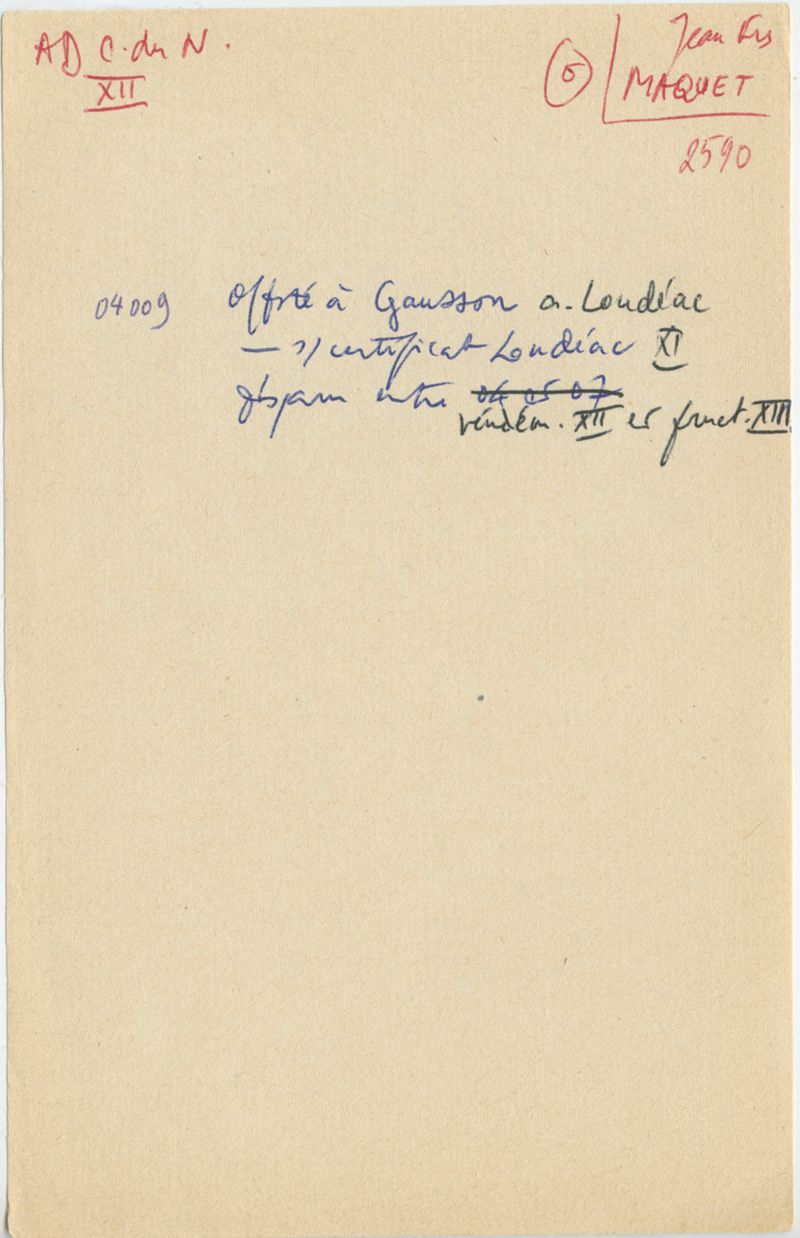 AD C. du N.
XII
Jean Frs
5 MAQUET
2590
04009 Offrté à Gausson a. Loudéac
— s/ certificat Loudéac XI
disparu entre 04 05 07
vendém. XII et fruct. XIII